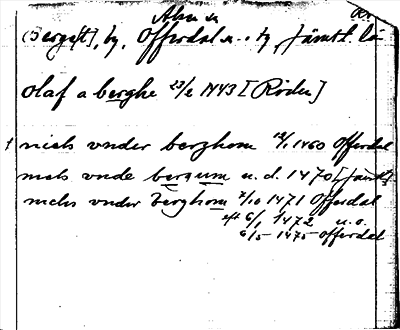 [Berget], by, Offerdal s. o. by, Jämtl. lä
Olaf a berghe 23/2 1443 [Röden]
1 niels vnder berghom 12/1 1460 Offerdal
niels vnde bergum u. d. 1470 [Jämtl.
niels vnder berghom 7/10 1471 Offerdal
eft 6/1 1472 u. o.
6/5 1475 Offerdal